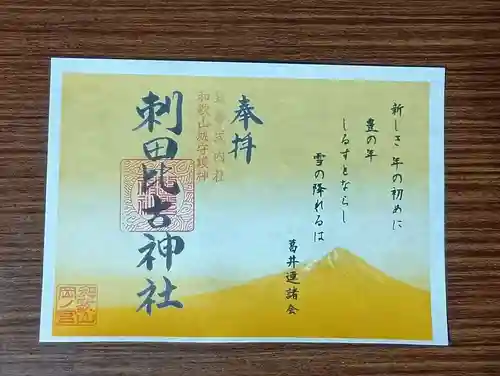 新しき年の初めに
豊の年
しるすとならし
雪の降れるは
葛井連諸会
奉拝
和歌山城守護神
刺田比古神社
岡ノ宮